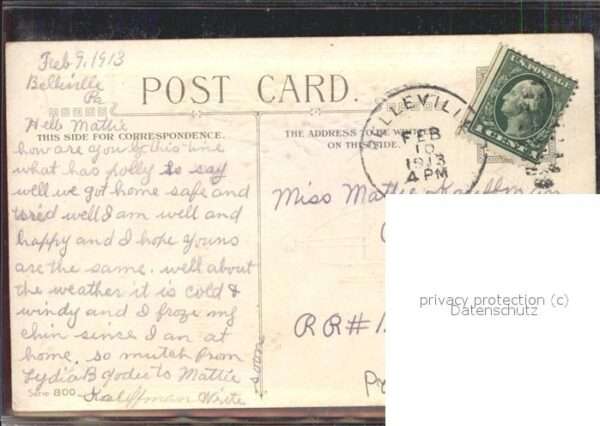 Feb 9, 1913
Belleville
Pa
POST CARD.
Hello Mattie
THIS SIDE FOR CORRESPONDENCE.
how are you by this time
what has polly to say
well we got home safe and
well I am well and
happy and I hope youns
are the same. well about
the weather it is cold &
windy and I froze my
chin since I am at
home. so mutch from
Lydia B to Mattie
Kauffman Write
soon
Serie 800
THE ADDRESS TO BE
ON THIS SIDE.
BELLEVILLE
FEB
10
1913
4 PM
U.S. POSTAGE
1 CENT 1
Miss Mattie Kauffman
R R # 1
privacy protection (c)
Datenschutz